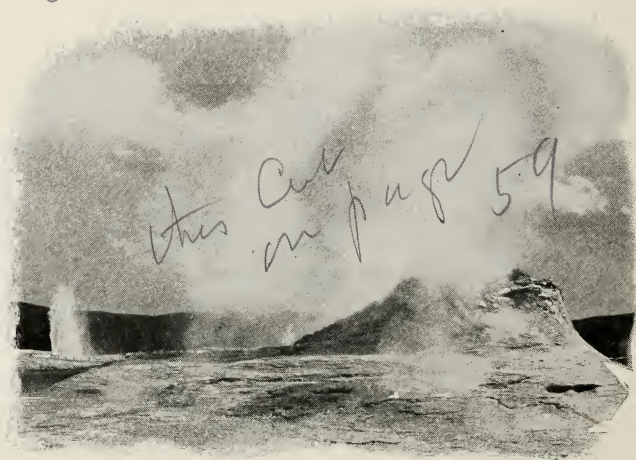 this Cut
on page 59